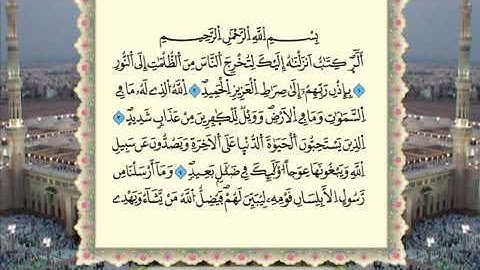 بِسْمِ اللَّهِ الرَّحْمَٰنِ الرَّحِيمِ
الٓرۚ كِتَٰبٌ أَنزَلْنَٰهُ إِلَيْكَ لِتُخْرِجَ النَّاسَ مِنَ الظُّلُمَٰتِ إِلَى النُّورِ
بِإِذْنِ رَبِّهِمْ إِلَىٰ صِرَٰطِ الْعَزِيزِ الْحَمِيدِ ۝١ اللَّهِ الَّذِي لَهُۥ مَا فِي
السَّمَٰوَٰتِ وَمَا فِي الْأَرْضِ ۗ وَوَيْلٌ لِّلْكَٰفِرِينَ مِنْ عَذَابٍ شَدِيدٍ ۝٢
الَّذِينَ يَسْتَحِبُّونَ الْحَيَوٰةَ الدُّنْيَا عَلَى الْآخِرَةِ وَيَصُدُّونَ عَن سَبِيلِ
اللَّهِ وَيَبْغُونَهَا عِوَجًا ۚ أُولَٰئِكَ فِي ضَلَٰلٍ بَعِيدٍ ۝٣ وَمَا أَرْسَلْنَا مِن
رَّسُولٍ إِلَّا بِلِسَانِ قَوْمِهِۦ لِيُبَيِّنَ لَهُمْ ۖ فَيُضِلُّ اللَّهُ مَن يَشَاءُ وَيَهْدِي